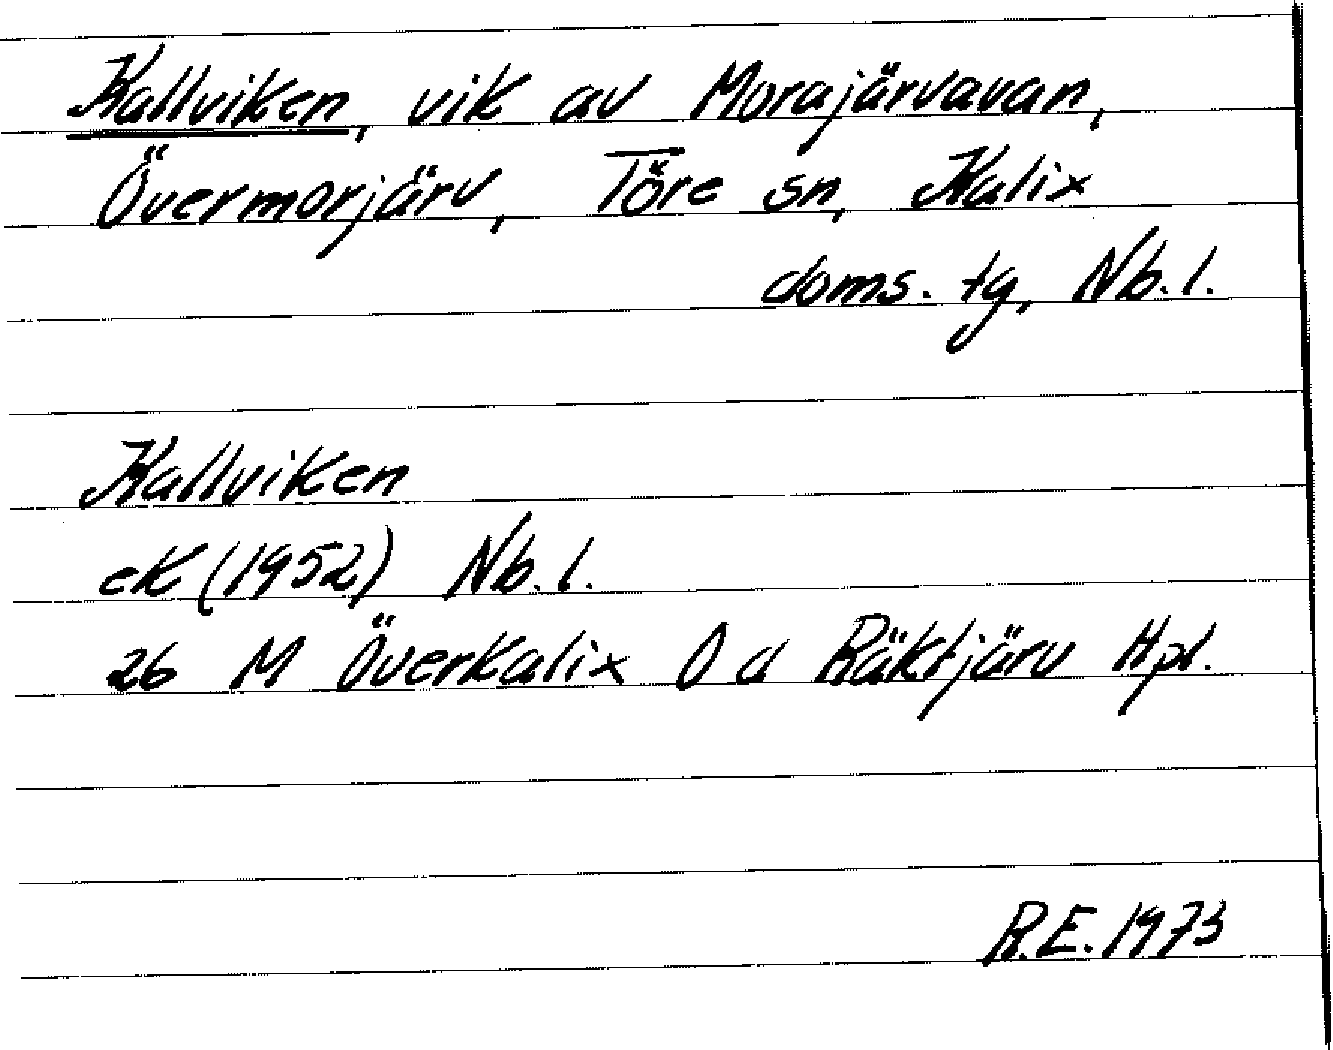 Kallviken, vik av Morajärvavan,
Övermorjärv, Töre sn, Kalix
doms. tg, Nb. l.
Kallviken
ek (1952) Nb. l.
26 M Överkalix O d Räktjärv Hpl.
R.E. 1973